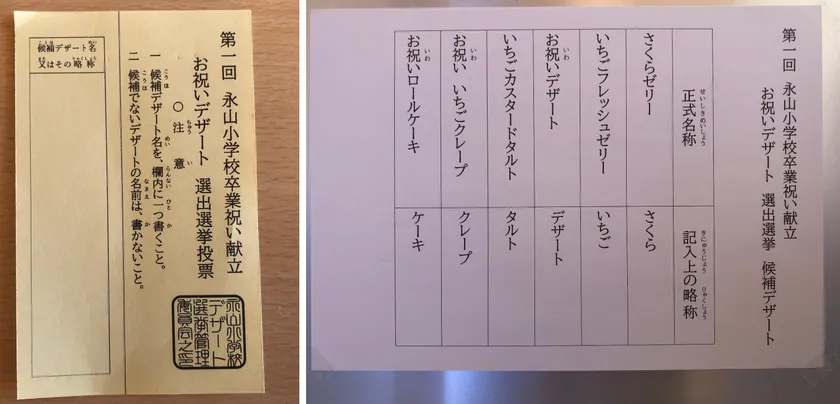 第一回 永山小学校卒業祝い献立
お祝いデザート 選出選挙投票
〇注意
一 候補デザート名を、欄内に一つ書くこと。
二 候補でないデザートの名前は、書かないこと。
候補デザート名
又はその略称
永山小学校
デザート
選挙管理
委員会之印
第一回 永山小学校卒業祝い献立
お祝いデザート 選出選挙 候補デザート
正式名称
記入上の略称
さくらゼリー
さくら
いちごフレッシュゼリー
いちご
お祝いデザート
デザート
いちごカスタードタルト
タルト
お祝い いちごクレープ
クレープ
お祝いロールケーキ
ケーキ